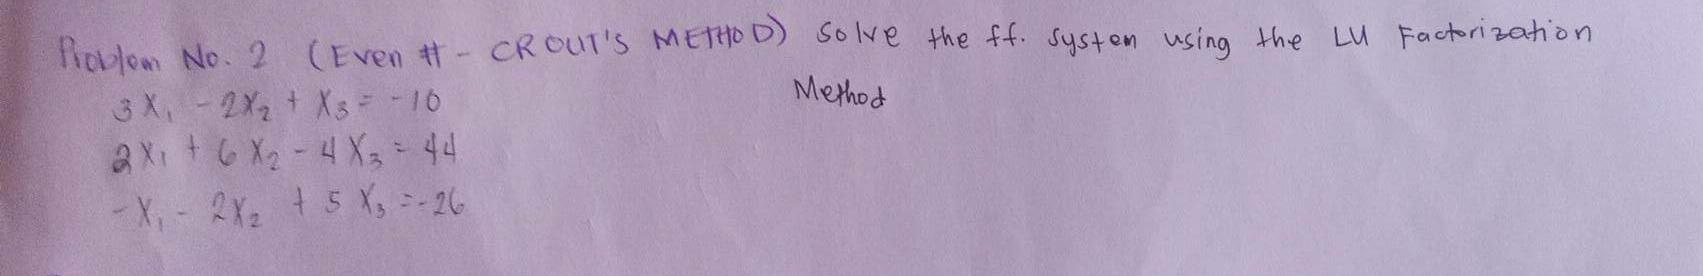 Problem No. 2 (Even # - CROUT'S METHOD) Solve the ff. system using the LU Factorization
Method
3X₁ - 2X₂ + X₃ = -10
2X₁ + 6X₂ - 4X₃ = 44
-X₁ - 2X₂ + 5X₃ = -26